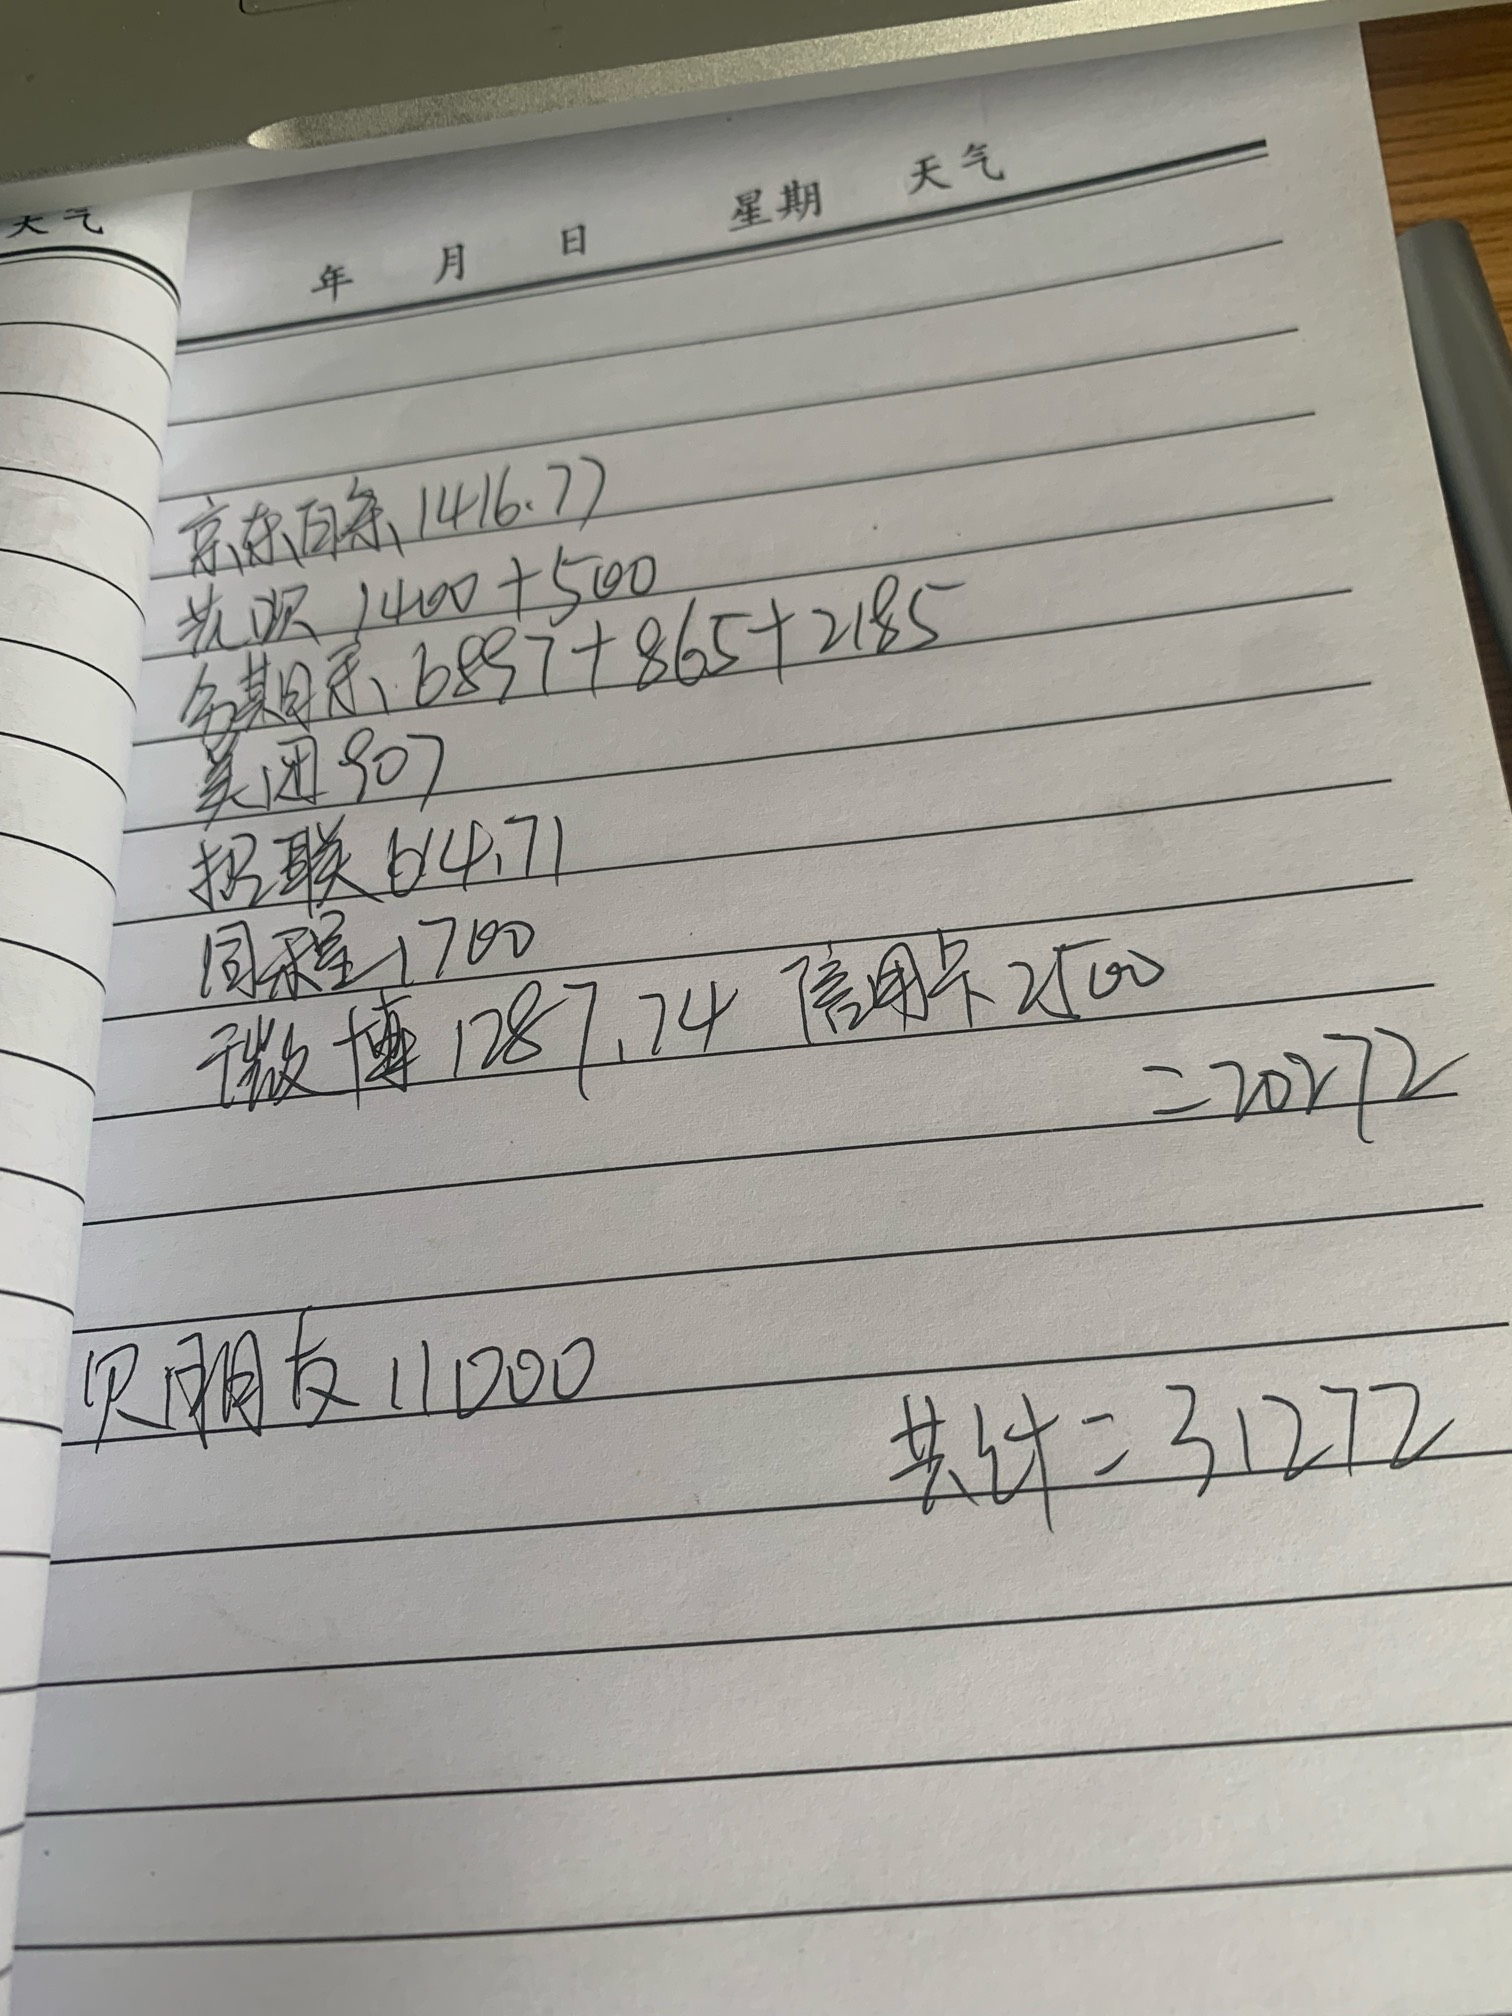 天气
年 月 日 星期 天气
京东白条 1416.77
先呗 1400+500
分期乐 6897+865+2185
美团 907
招联 614.71
同程 1700
微博 1287.74 信用卡 2500
=20272
欠朋友 11000
共计=31272